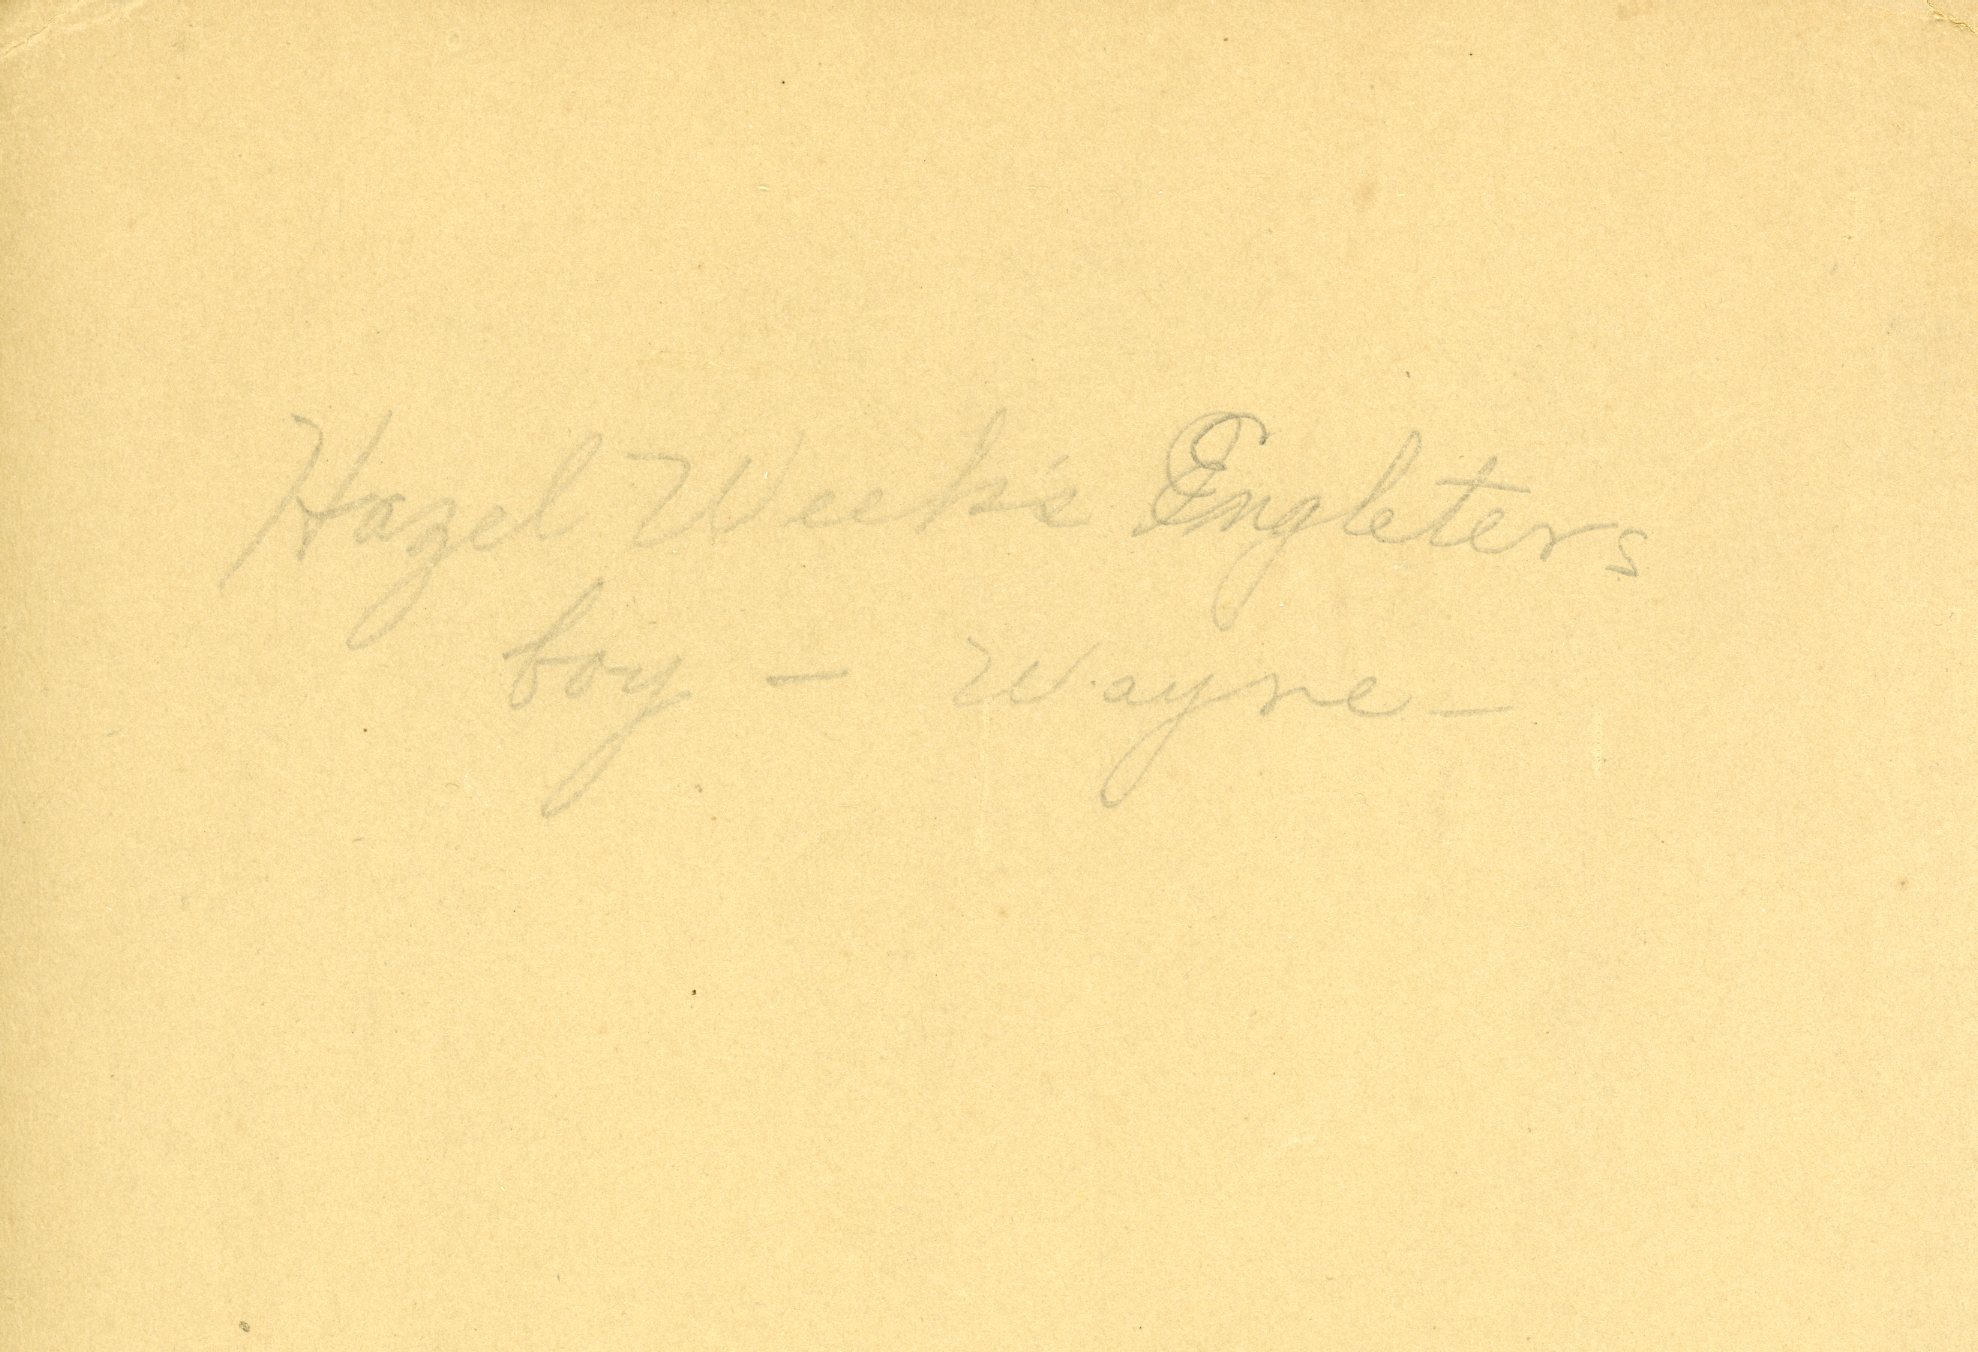 Hazel Week's Engleters
boy - Wayne -